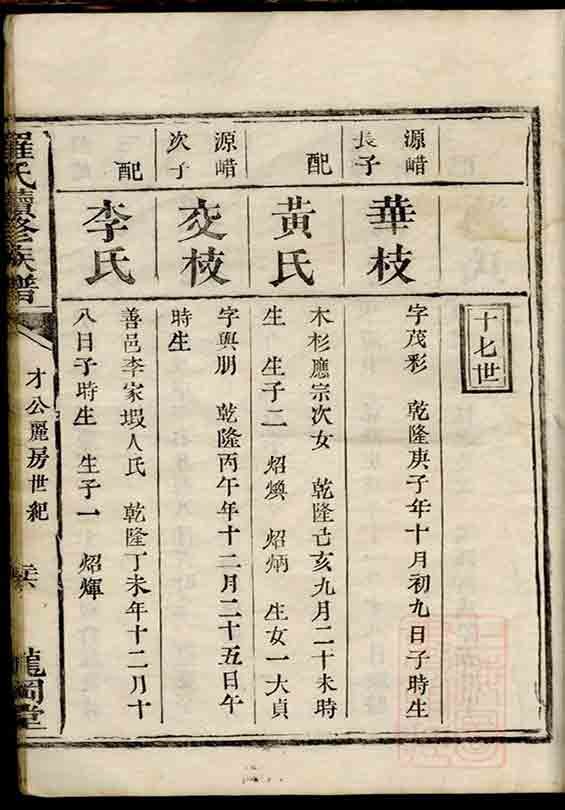 十七世
源㟙
長子
華枝
字茂彩　乾隆庚子年十月初九日子時生
配
黃氏
木杉應宗次女　乾隆己亥九月二十未時
生　生子二　炤煥　炤炳　生女一大貞
源㟙
次子
交枝
字興朋　乾隆丙午年十二月二十五日午
時生
配
李氏
善邑李家塅人氏　乾隆丁未年十二月十
八日子時生　生子一　炤煇
羅氏續修族譜
才公麗房世紀
龍岡堂